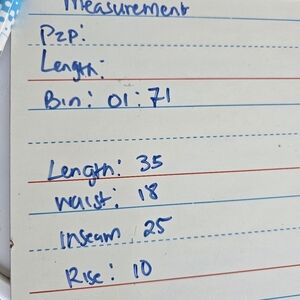 Measurement
P2P:
Length:
Bin: 01:71
Length: 35
Waist: 18
Inseam 25
Rise: 10